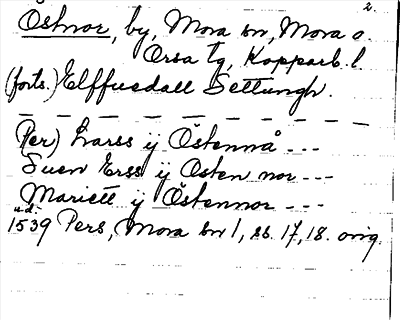 2.
Östnor, by, Mora sn, Mora o.
Orsa tg, Kopparb. l.
(forts.) Elffuedall Settungh.
Per) Larss ij Östennå ---
Suen Erss ij Osten nor ---
Mariett ij Östennor ---
u.d.
1539 Pers, Mora sn 1, ss. 17, 18. orig.